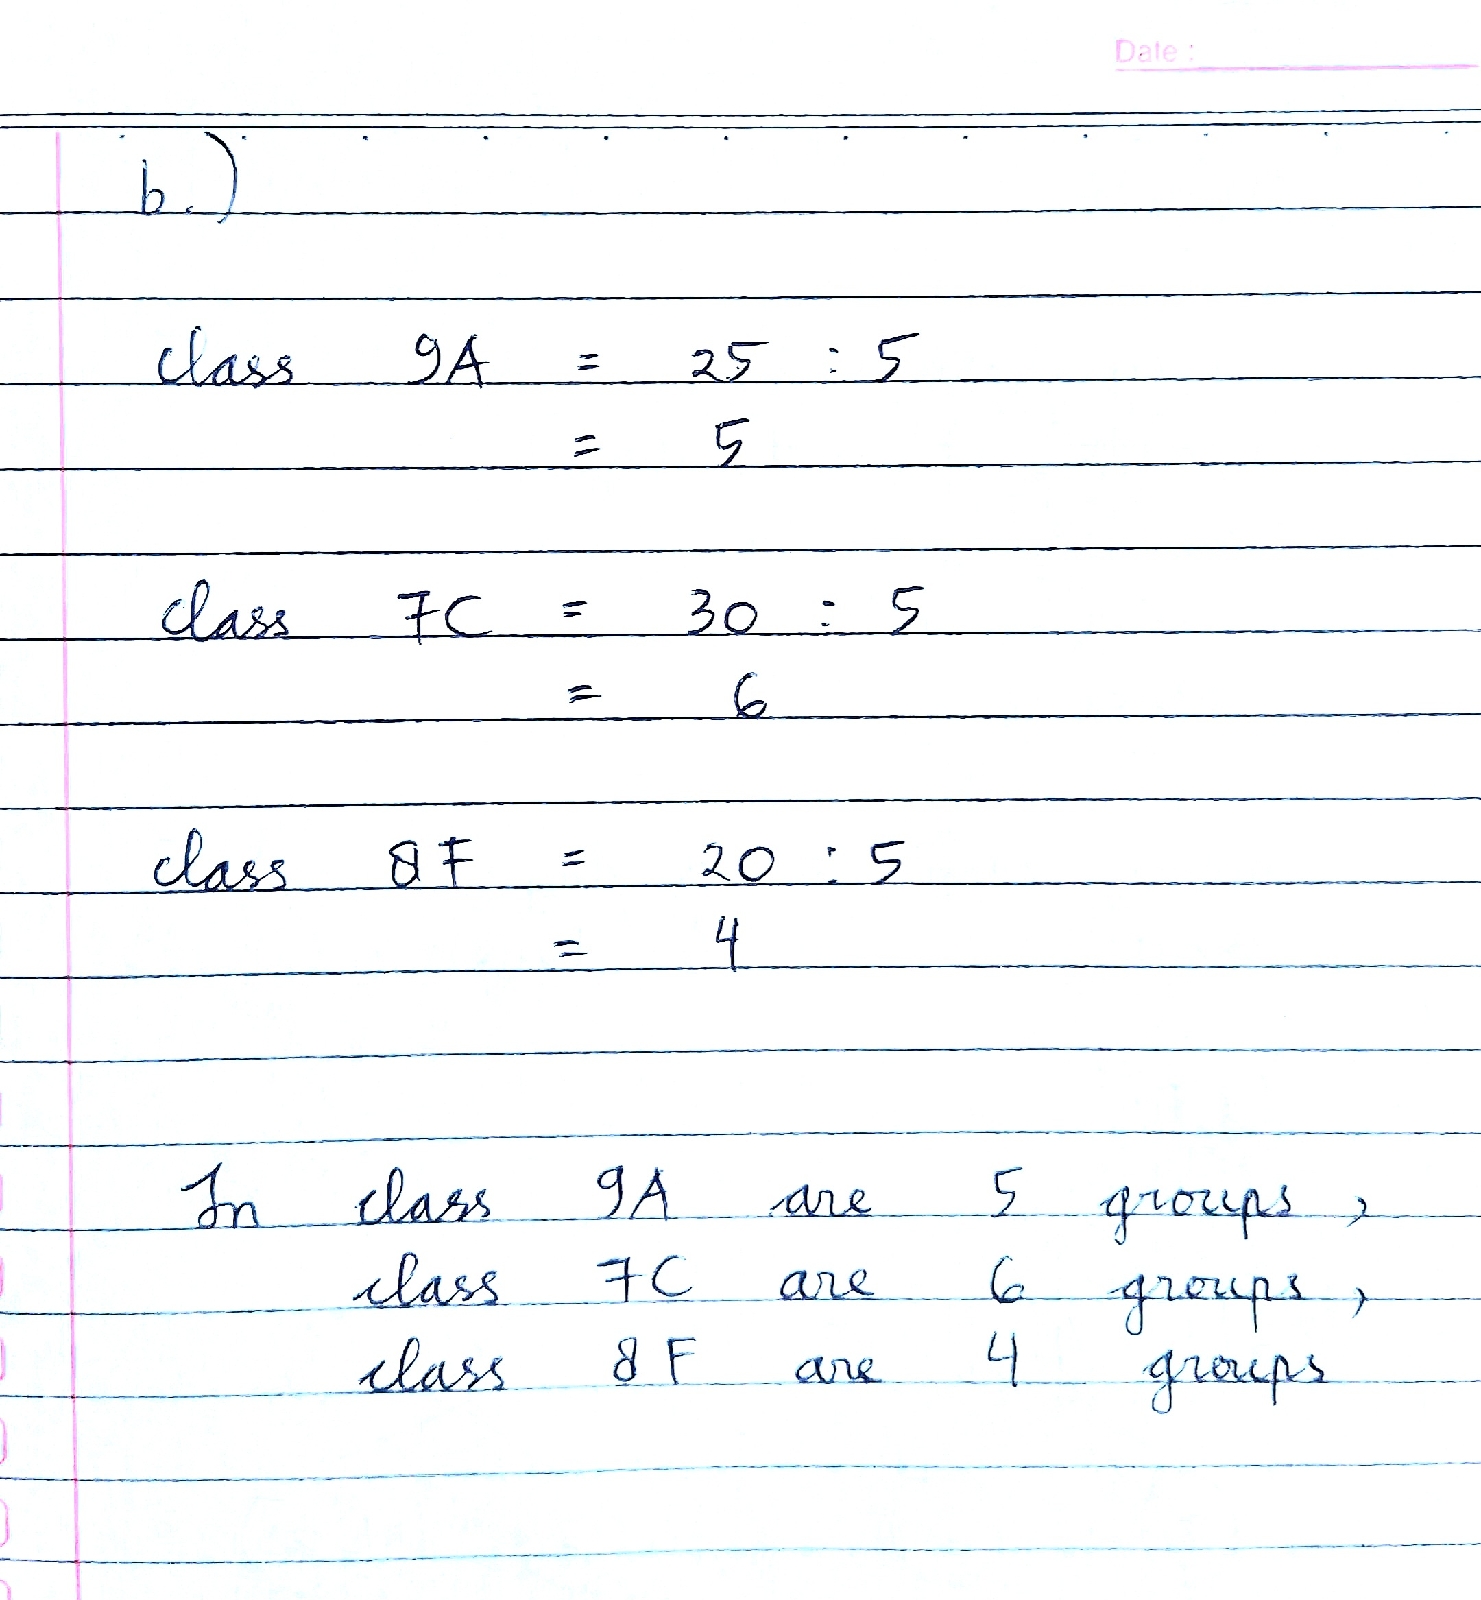 Date :
b.)
class 9A = 25 : 5
= 5
class 7C = 30 : 5
= 6
class 8F = 20 : 5
= 4
In class 9A are 5 groups,
class 7C are 6 groups,
class 8F are 4 groups